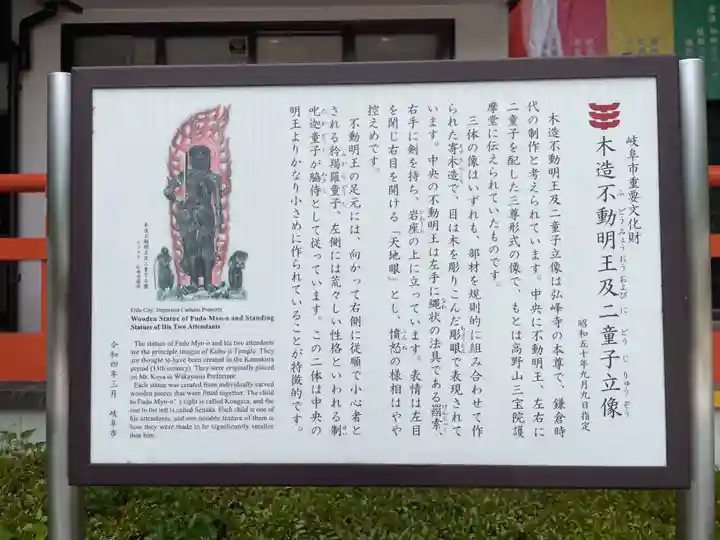 岐阜市重要文化財
木造不動明王及二童子立像
ふどうみょうおうおよびにどうじりゅうぞう
昭和五十年九月九日指定
木造不動明王及二童子立像は弘峰寺の本尊で、鎌倉時
代の制作と考えられています。中央に不動明王、左右に
二童子を配した三尊形式の像で、もとは高野山三宝院護
摩堂に伝えられていたものです。
三体の像はいずれも、部材を規則的に組み合わせて作
られた寄木造で、目は木を彫りこんだ彫眼で表現されて
います。中央の不動明王は左手に縄状の法具である羂索、
右手に剣を持ち、岩座の上に立っています。表情は左目
を閉じ右目を開ける「天地眼」とし、憤怒の様相はやや
控えめです。
不動明王の足元には、向かって右側に従順で小心者と
される矜羯羅童子、左側には荒々しい性格といわれる制
吒迦童子が脇侍として従っています。この二体は中央の
明王よりかなり小さめに作られていることが特徴的です。
木造不動明王及二童子立像
Gifu City: Important Cultural Property
Wooden Statue of Fudo Myo-o and Standing
Statues of His Two Attendants
The statues of Fudo Myo-o and his two attendants
are the principle images of Kobu-ji Temple. They
are thought to have been created in the Kamakura
period (13th century). They were originally placed
on Mt. Koya in Wakayama Prefecture.
Each statue was created from individually carved
wooden pieces that were fitted together. The child
to Fudo Myo-o's right is called Kongara, and the
one to his left is called Seitaka. Each child is one of
his attendants, and one notable feature of them is
how they were made to be significantly smaller
than him.
令和四年三月 岐阜市